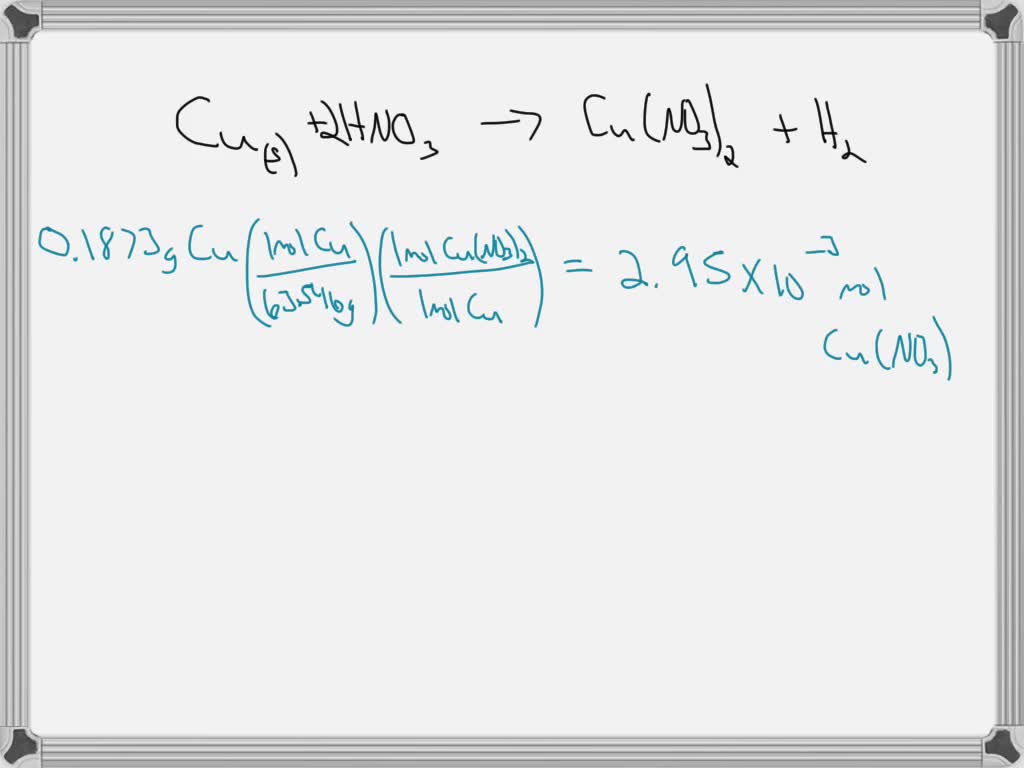 Cu(s) + 2HNO3 → Cu(NO3)2 + H2
0.1873g Cu (1mol Cu / 63.546g) (1mol Cu(NO3)2 / 1mol Cu) = 2.95 × 10^-3 mol
Cu(NO3)